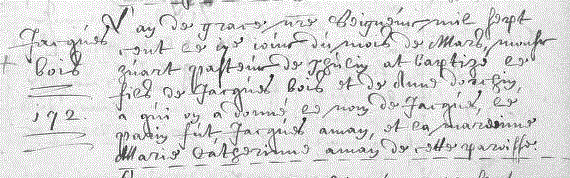 Jacques
bois
172.
L'an de grace nre Seigneur mil sept
cent le xe jour du mois de Mars, monsr
pasteur de at baptizé le
fils de Jacques bois et de Anne
à qui on a donné le nom de Jacques, le
parin fut Jacques aman, et la mareinne
Marie Catherinne aman de cette parroisse